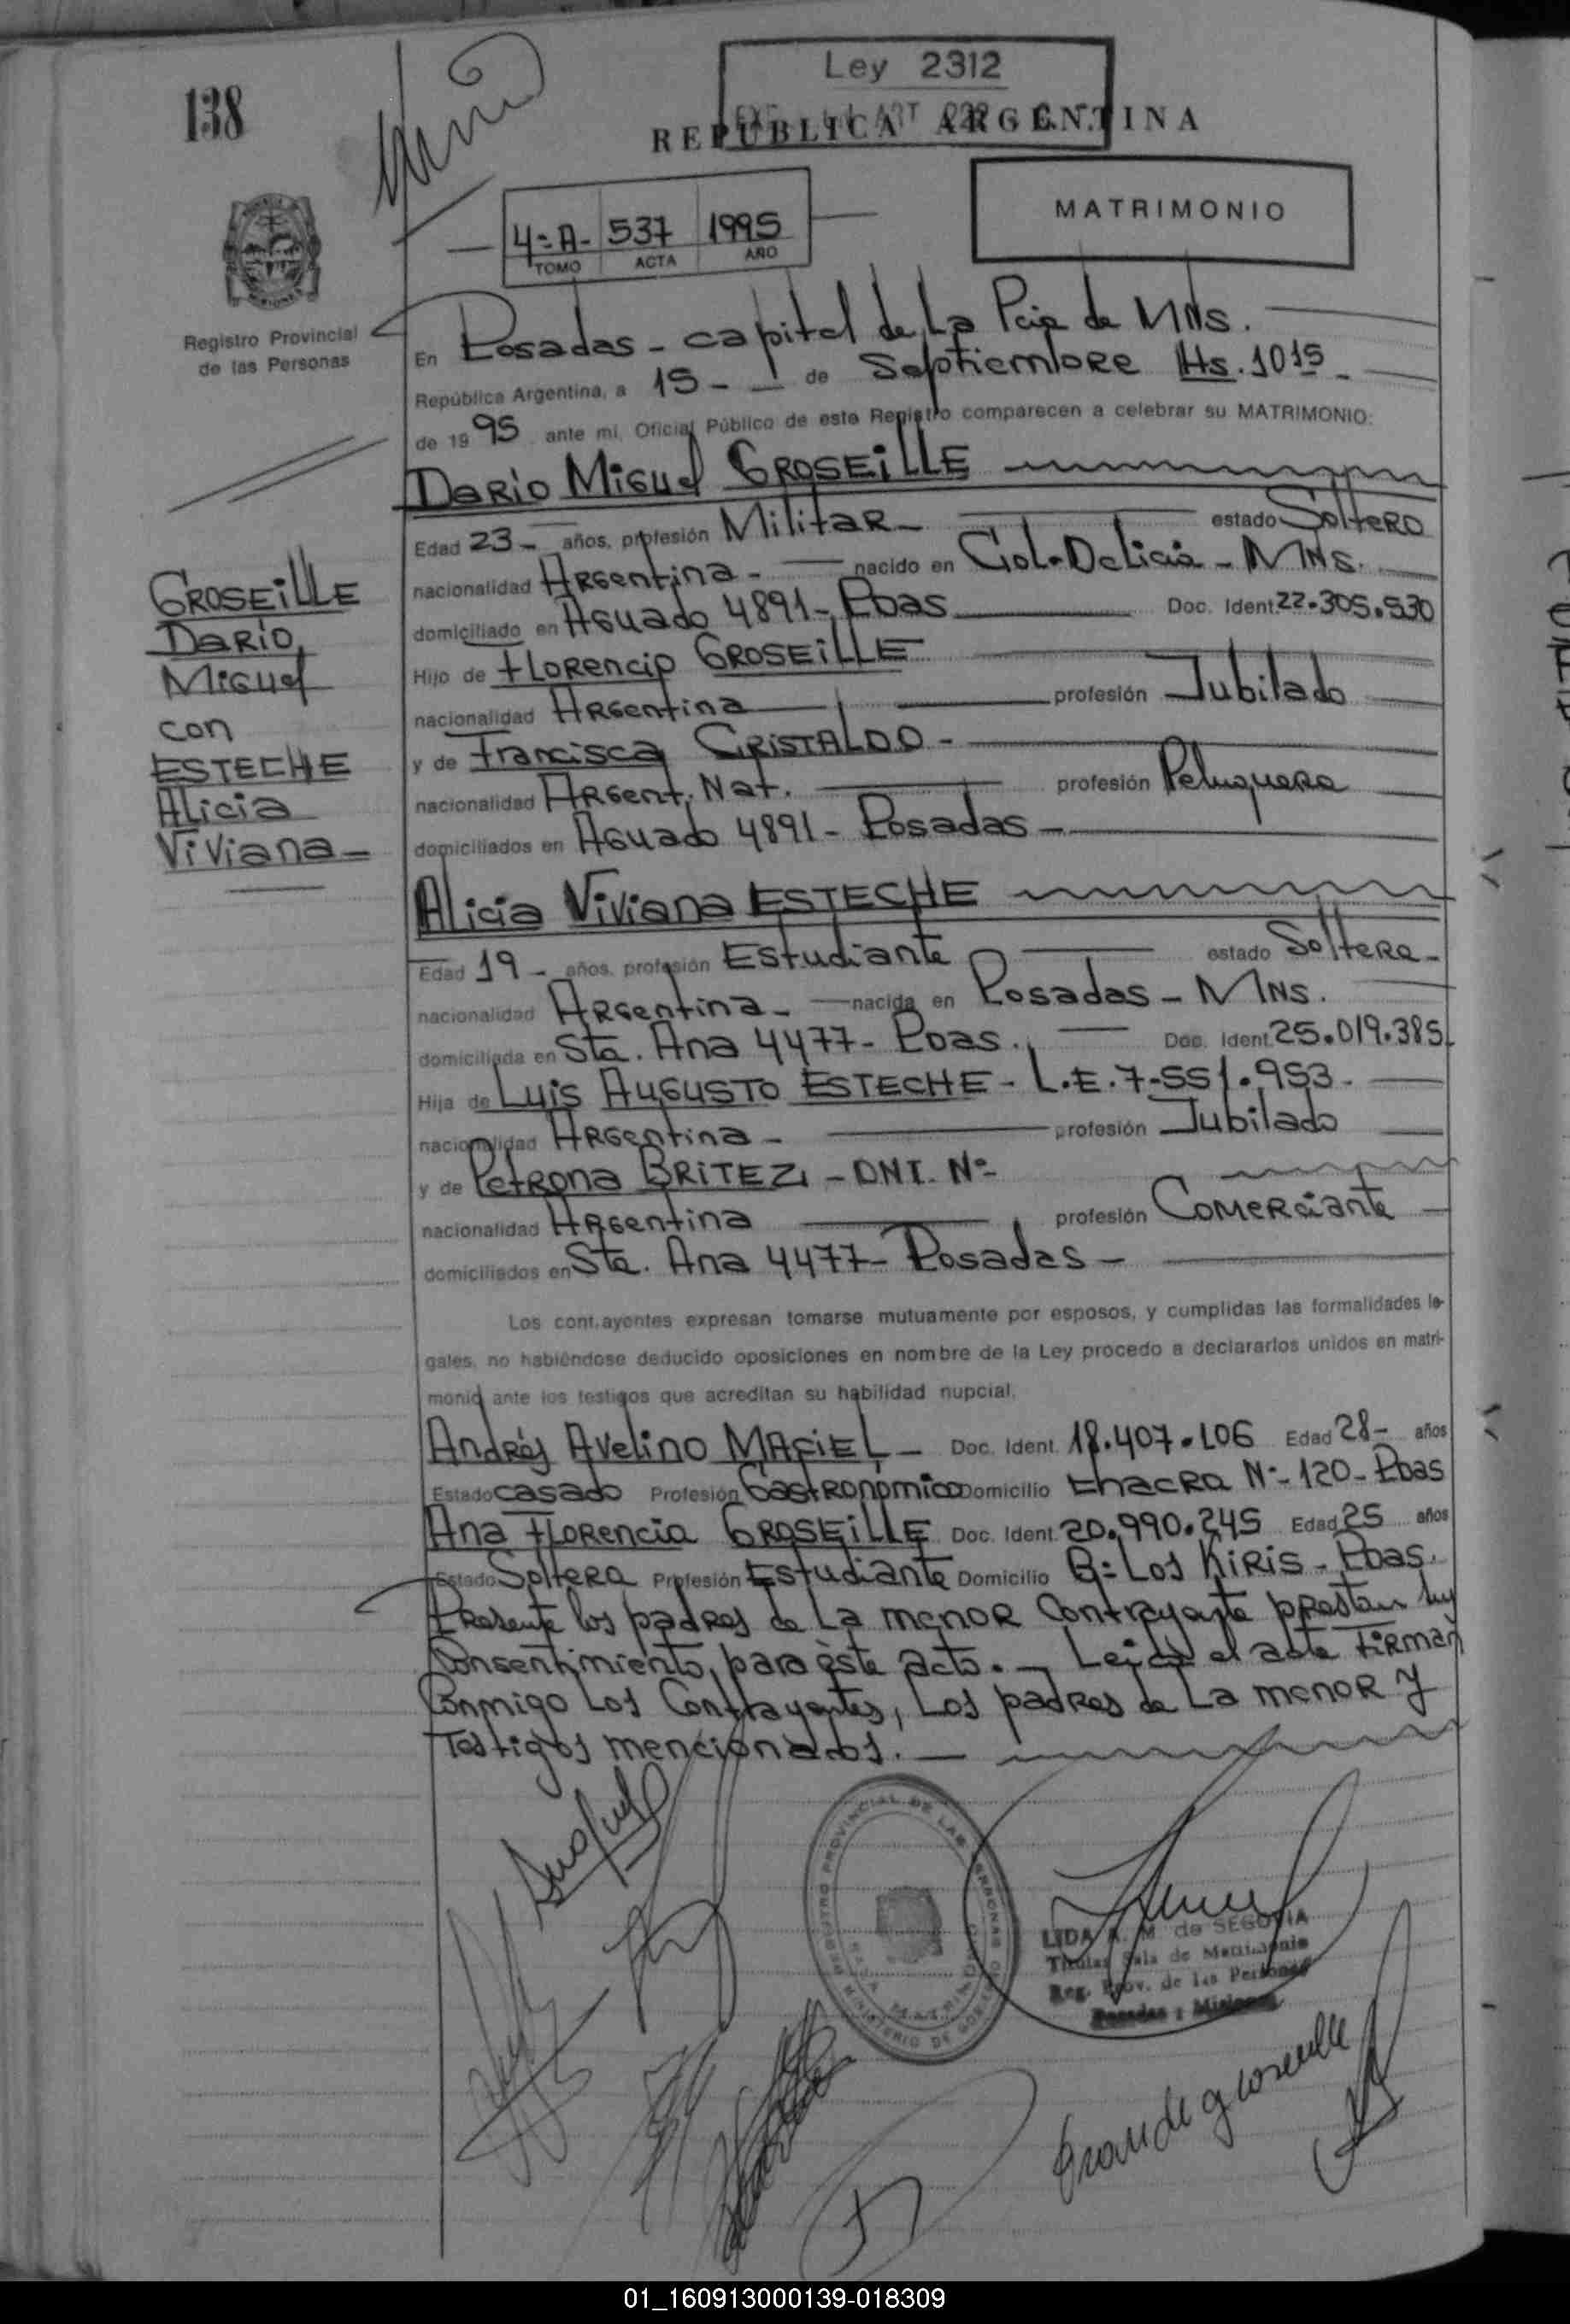 138
Ley 2312
REPUBLICA ARGENTINA
4=A- 537 1995
TOMO ACTA AÑO
MATRIMONIO
Registro Provincial
de las Personas
En Posadas - capital de La Pcia de MNS.
República Argentina, a 15 - de Septiembre Hs. 1015 -
de 1995 ante mi, Oficial Público de este Registro comparecen a celebrar su MATRIMONIO:
Dario Miguel GROSEILLE
Edad 23 - años, profesión Militar - estado Soltero
nacionalidad Argentina - nacido en Col. Delicia - MNS.
domiciliado en Aguado 4891 - Pdas Doc. Ident. 22.305.530
Hijo de Florencio GROSEILLE
nacionalidad Argentina profesión Jubilado
y de Francisca CRISTALDO -
nacionalidad Argent. Nat. profesión Peluquera
domiciliados en Aguado 4891 - Posadas -
GROSEILLE
Dario
Miguel
con
ESTECHE
Alicia
Viviana -
Alicia Viviana ESTECHE
Edad 19 - años, profesión Estudiante estado Soltera -
nacionalidad Argentina - nacida en Posadas - MNS.
domiciliada en Sta. Ana 4477 - Pdas. Doc. Ident. 25.019.385
Hija de Luis Augusto ESTECHE - L.E. 7.551.953 -
nacionalidad Argentina - profesión Jubilado
y de Petrona BRITEZ - DNI. Nº
nacionalidad Argentina profesión Comerciante
domiciliados en Sta. Ana 4477 - Posadas -
Los cont.ayentes expresan tomarse mutuamente por esposos, y cumplidas las formalidades le-
gales, no habiéndose deducido oposiciones en nombre de la Ley procedo a declararlos unidos en matri-
monio ante los testigos que acreditan su habilidad nupcial.
Andrés Avelino MACIEL - Doc. Ident. 18.407.106 Edad 28 - años
Estado casado Profesión Gastronómico Domicilio Chacra Nº 120 - Pdas
Ana Florencia GROSEILLE Doc. Ident. 20.990.245 Edad 25 años
Estado Soltera Profesión Estudiante Domicilio Bº Los Kiris - Pdas.
Presente los padres de La menor Contrayente prestan su
Consentimiento, para éste acto. - Leida el acta Firman
Conmigo Los Contrayentes, Los padres de La menor y
Testigos mencionados. -
REGISTRO PROVINCIAL DE LAS PERSONAS
MINISTERIO DE GOBIERNO
LIDA A. M. de SEGOVIA
Titular Sala de Matrimonio
Reg. Prov. de las Personas
Posadas : Misiones
01_160913000139-018309